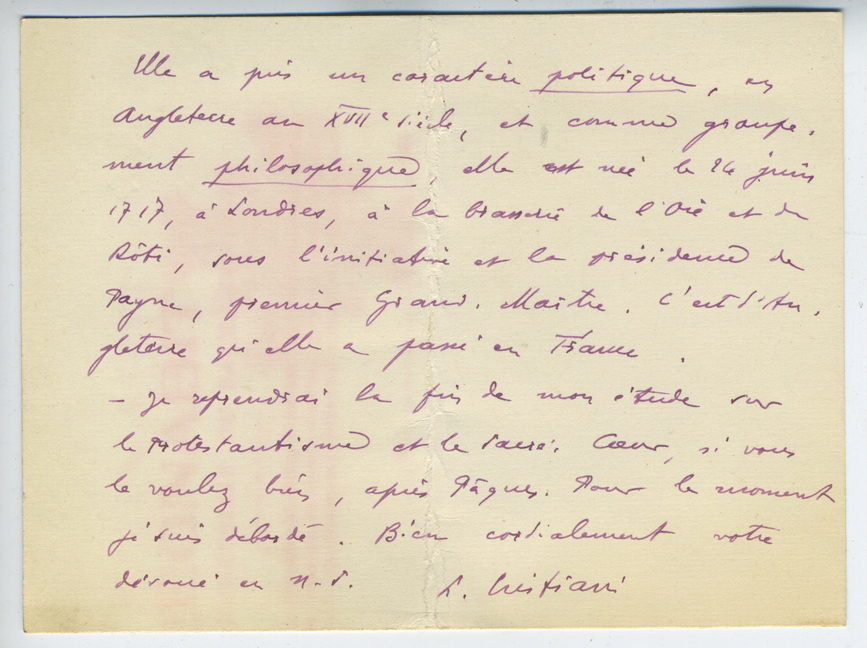 Elle a pris un caractère politique, en
Angleterre au XVIIe siècle, et comme groupe-
ment philosophique, elle est née le 24 juin
1717, à Londres, à la brasserie de l'Oie et du
Rôti, sous l'initiative et la présidence de
Payne, premier Grand-Maître. C'est d'An-
gleterre qu'elle a passé en France.
– Je reprendrai la fin de mon étude sur
le Protestantisme et le Sacré-Cœur, si vous
le voulez bien, après Pâques. Pour le moment
je suis débordé. Bien cordialement votre
dévoué en N.-S. L. Cristiani